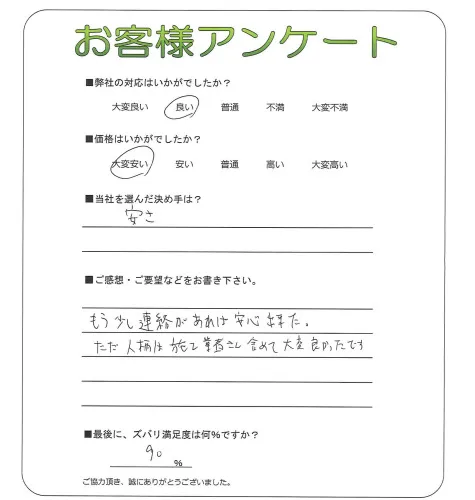 お客様アンケート
■弊社の対応はいかがでしたか？
大変良い 良い 普通 不満 大変不満
■価格はいかがでしたか？
大変安い 安い 普通 高い 大変高い
■当社を選んだ決め手は？
安さ
■ご感想・ご要望などをお書き下さい。
もう少し連絡があれば安心出来た。
ただ人柄は施工業者さん含めて大変良かったです
■最後に、ズバリ満足度は何%ですか？
90
%
ご協力頂き、誠にありがとうございました。